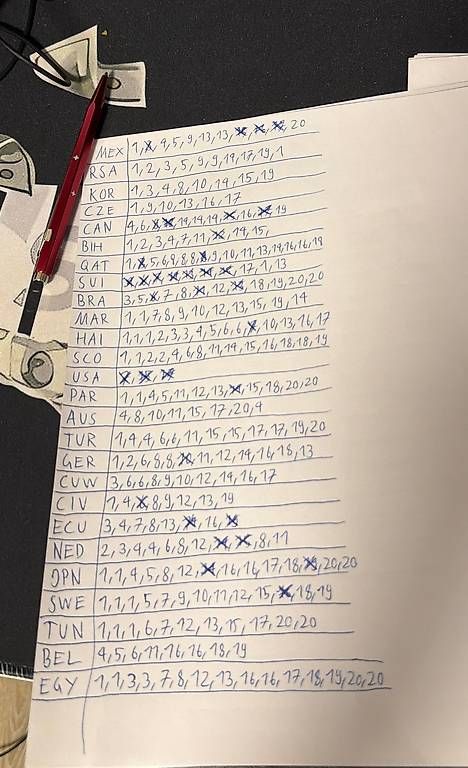 MEX 1, 4, 5, 9, 13, 13, 20
RSA 1, 2, 3, 5, 9, 9, 17, 19, 1
KOR 1, 3, 4, 8, 10, 14, 15, 19
CZE 1, 9, 10, 13, 16, 17
CAN 4, 6, 14, 14, 16, 19
BIH 1, 2, 3, 4, 7, 11, 14, 15,
QAT 1, 5, 6, 8, 8, 9, 10, 11, 13, 14, 16, 16, 19
SUI 17, 1, 13
BRA 3, 5, 7, 8, 12, 18, 19, 20, 20
MAR 1, 1, 7, 8, 9, 10, 12, 13, 15, 19, 14
HAI 1, 1, 1, 2, 3, 3, 4, 5, 6, 6, 10, 13, 16, 17
SCO 1, 1, 2, 2, 4, 6, 8, 11, 14, 15, 16, 18, 18, 19
USA
PAR 1, 1, 4, 5, 11, 12, 13, 15, 18, 20, 20
AUS 4, 8, 10, 11, 15, 17, 20, 4
TUR 1, 4, 4, 6, 6, 11, 15, 15, 17, 17, 19, 20
GER 1, 2, 6, 8, 8, 11, 12, 14, 16, 18, 13
CUW 3, 6, 6, 8, 9, 10, 12, 14, 16, 17
CIV 1, 4, 8, 9, 12, 13, 19
ECU 3, 4, 7, 8, 13, 16
NED 2, 3, 4, 4, 6, 8, 12, 8, 11
JPN 1, 1, 4, 5, 8, 12, 16, 16, 17, 18, 20, 20
SWE 1, 1, 1, 5, 7, 9, 10, 11, 12, 15, 18, 19
TUN 1, 1, 1, 6, 7, 12, 13, 15, 17, 20, 20
BEL 4, 5, 6, 11, 16, 16, 18, 19
EGY 1, 1, 3, 3, 7, 8, 12, 13, 16, 16, 17, 18, 19, 20, 20